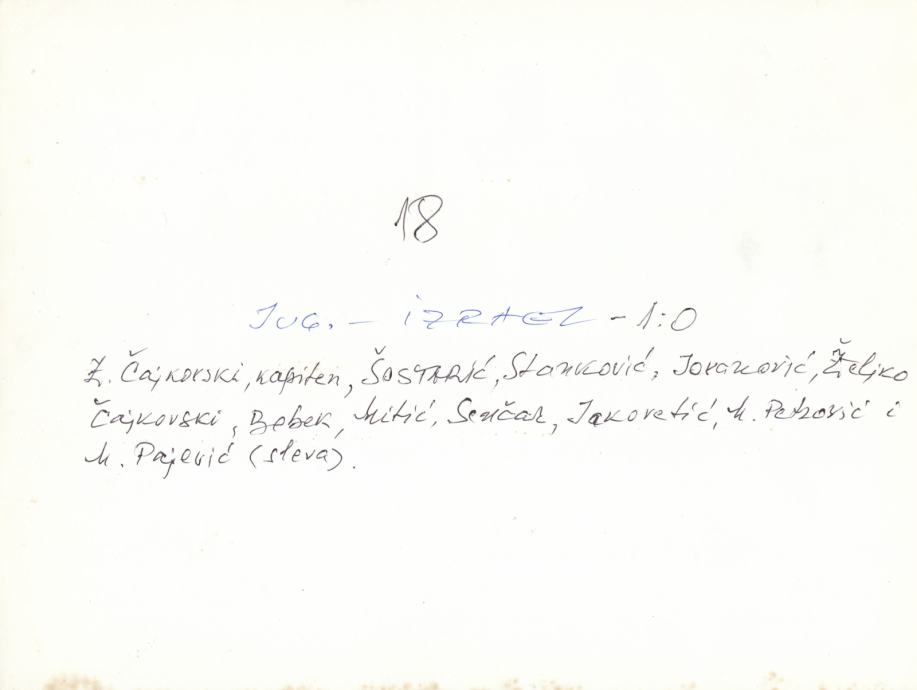 18
Jug. - IZRAEL - 1:0
Z. Čajkovski, kapiten, ŠOSTARIĆ, Stanković, Jovanović, Željko
Čajkovski, Bobek, Mitić, Senčar, Jakovetić, M. Petrović i
M. Pajević (sleva).